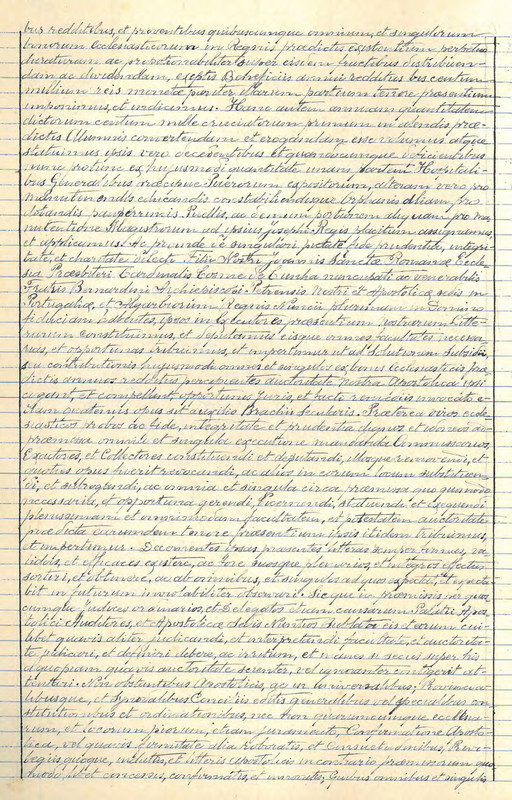 bus redditibus, et proventibus quibuscumque omnium, et singulorum
bonorum Ecclesiasticorum in Regnis praedictis existentium perpetuo
duraturam ac proportionabiliter super eisdem fructibus distribuen-
dam ac dividendam, exeptis Beneficiis annui redditus bis centum
millium reis monetae pariter illarum partium tenore praesentium
imponimus, et indicimus. Hanc autem annuam quantitatem
dictorum centum mille cruciatorum primum in alendis prae-
dictis Alumnis convertendam et erogandam esse volumus atque
statuimus ipsis vero decedentibus et quandocumque deficientibus
nunc pro tunc ex hujusmodi quantitate unam partem Hospitali-
bus Generalibus maxime Puerorum expositorum, alteram vero pro
manutenendis educandis constabiliendisque Orphanis aliam pro
dotandis pauperrimis Puellis, ac demum portionem aliquam pro ma-
nutentione Magistrorum ad ipsius Josephi Regis placitum assignamus,
et applicamus. Ac proinde de singulari pietate fide prudentia, integri-
tate et charitate dilecti Filii Nostri Joannis Sanctae Romanae Eccle-
siae Praesbiteri Cardinalis Cosmae da Cunha nuncupati ac venerabilis
Fratris Bernardini Archiepiscopi Petrensis nostri et Apostolicae sedis in
Portugaliae, et Algarbiorum Regnis Nuncii plurimum in Domino
fiduciam habentes, ipsos in Executores praesentium nostrarum Litte-
rarum constituimus, et deputamus eisque omnes facultates necessa-
rias, et opportunas tribuimus, et impertimur ut ad solutionem Subsidii
seu contributionis hujusmodi omnes et singulos ex bonis ecclesiasticis prae-
dictis annuos redditus percipientes auctoritate nostra Apostolica ipsi
cogant, et compellant opportunis juris, et facti remediis invocato e-
tiam quatenus opus sit auxilio Brachii Secularis. Praeterea viros eccle-
siasticos probos ac fide, integritate et prudentia dignos et idoneos ad
praemissa omnia et singula executione mandanda Commissarios,
Exactores, et Collectores constituendi et deputandi, illosque removendi, et
quoties opus fuerit revocandi, ac alios in eorum locum substituen-
di, et subrogandi, ac omnia et singula circa praemissa quomodo
necessaria, et opportuna gerendi, faciendi, statuendi et exequendi
plenissimam et omnimodam facultatem, et potestatem auctoritate
praedicta earumdem tenore praesentium ipsis itidem tribuimus,
et impertimur. Decernentes ipsas praesentes litteras semper firmas, va-
lidas, et efficaces existere, ac fore suosque plenarios, et integros effectus
sortiri, et obtinere, ac ab omnibus, et singulis ad quos expectat, et specta-
bit in futurum inviolabiliter observari. Sicque in praemissis per quos-
cumque judices ordinarios, et Delegatos etiam causarum Palatii Apos-
tolici Auditores, et Apostolicae Sedis Nuntios sublata eis eorum cui-
libet quavis aliter judicandi, et interpretandi facultate, et auctorita-
te judicari, et definiri debere, ac irritum, et inane si secus super his
a quoquam quavis auctoritate scienter, vel ignoranter contigerit at-
tentari. Non obstantibus Apostolicis, ac in universalibus, Provincia-
libusque, et Synodalibus Conciliis editis generalibus vel specialibus con-
stitutionibus et ordinationibus, nec non quarumcumque eccclesia-
rum, et locorum piorum, etiam juramento, Confirmatione Aposto-
lica, vel quavis firmitate alia roboratis, et Consuetudinibus, Privi-
legiis quoque, indultis, et litteris Apostolicis in contrario praemissorum quo-
modolibet concessis, confirmatis, et innovatis; Quibus omnibus et singulis